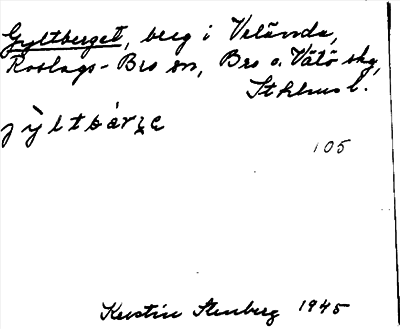 Gyltberget, berg i Velända,
Roslags-Bro sn, Bro o. Vätö skg,
Sthlms l.
jỳltbárʒe
105
Kerstin Stenberg 1945